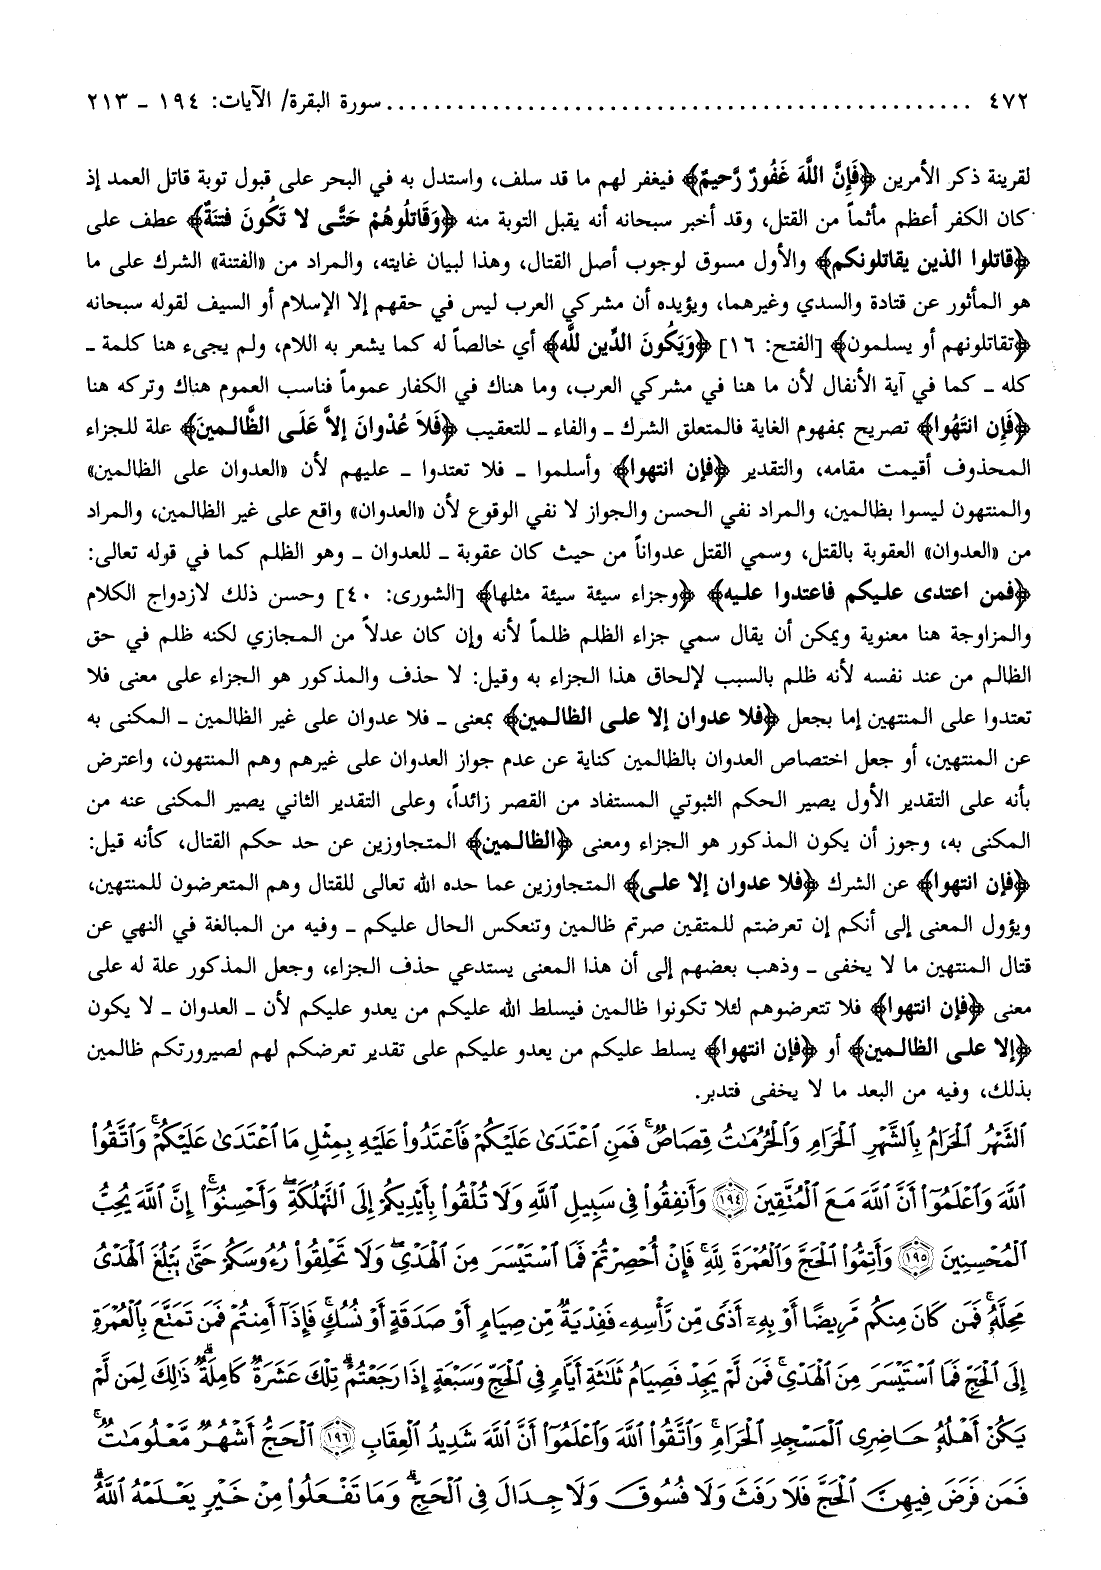 ٤٧٢ ........................................ سورة البقرة/ الآيات: ١٩٤ ـ ٢١٣
لقرينة ذكر الأمرين ﴿فَإِنَّ اللَّهَ غَفُورٌ رَّحِيمٌ﴾ فيغفر لهم ما قد سلف، واستدل به في البحر على قبول توبة قاتل العمد إذ
كان الكفر أعظم مأثماً من القتل، وقد أخبر سبحانه أنه يقبل التوبة منه ﴿وَقَاتِلُوهُمْ حَتَّى لا تَكُونَ فتنةٌ﴾ عطف على
﴿قاتلوا الذين يقاتلونكم﴾ والأول مسوق لوجوب أصل القتال، وهذا لبيان غايته، والمراد من «الفتنة» الشرك على ما
هو المأثور عن قتادة والسدي وغيرهما، ويؤيده أن مشركي العرب ليس في حقهم إلا الإسلام أو السيف لقوله سبحانه
﴿تقاتلونهم أو يسلمون﴾ [الفتح: ١٦] ﴿وَيَكُونَ الدِّين للَّه﴾ أي خالصاً له كما يشعر به اللام، ولم يجىء هنا كلمة ـ
كله ـ كما في آية الأنفال لأن ما هنا في مشركي العرب، وما هناك في الكفار عموماً فناسب العموم هناك وتركه هنا
﴿فَإِن انتَهُوا﴾ تصريح بمفهوم الغاية فالمتعلق الشرك ـ والفاء ـ للتعقيب ﴿فَلاَ عُدْوانَ إلاَّ عَلَى الظَّالمينَ﴾ علة للجزاء
المحذوف أقيمت مقامه، والتقدير ﴿فإن انتهوا﴾ وأسلموا ـ فلا تعتدوا ـ عليهم لأن «العدوان على الظالمين»
والمنتهون ليسوا بظالمين، والمراد نفي الحسن والجواز لا نفي الوقوع لأن «العدوان» واقع على غير الظالمين، والمراد
من «العدوان» العقوبة بالقتل، وسمي القتل عدواناً من حيث كان عقوبة ـ للعدوان ـ وهو الظلم كما في قوله تعالى:
﴿فمن اعتدى عليكم فاعتدوا عليه﴾ ﴿وجزاء سيئة سيئة مثلها﴾ [الشورى: ٤٠] وحسن ذلك لازدواج الكلام
والمزاوجة هنا معنوية ويمكن أن يقال سمي جزاء الظلم ظلماً لأنه وإن كان عدلاً من المجازي لكنه ظلم في حق
الظالم من عند نفسه لأنه ظلم بالسبب لإلحاق هذا الجزاء به وقيل: لا حذف والمذكور هو الجزاء على معنى فلا
تعتدوا على المنتهين إما بجعل ﴿فلا عدوان إلا على الظالمين﴾ بمعنى ـ فلا عدوان على غير الظالمين ـ المكنى به
عن المنتهين، أو جعل اختصاص العدوان بالظالمين كناية عن عدم جواز العدوان على غيرهم وهم المنتهون، واعترض
بأنه على التقدير الأول يصير الحكم الثبوتي المستفاد من القصر زائداً، وعلى التقدير الثاني يصير المكنى عنه من
المكنى به، وجوز أن يكون المذكور هو الجزاء ومعنى ﴿الظالمين﴾ المتجاوزين عن حد حكم القتال، كأنه قيل:
﴿فإن انتهوا﴾ عن الشرك ﴿فلا عدوان إلا على﴾ المتجاوزين عما حده الله تعالى للقتال وهم المتعرضون للمنتهين،
ويؤول المعنى إلى أنكم إن تعرضتم للمتقين صرتم ظالمين وتنعكس الحال عليكم ـ وفيه من المبالغة في النهي عن
قتال المنتهين ما لا يخفى ـ وذهب بعضهم إلى أن هذا المعنى يستدعي حذف الجزاء، وجعل المذكور علة له على
معنى ﴿فإن انتهوا﴾ فلا تتعرضوهم لئلا تكونوا ظالمين فيسلط الله عليكم من يعدو عليكم لأن ـ العدوان ـ لا يكون
﴿إلا على الظالمين﴾ أو ﴿فإن انتهوا﴾ يسلط عليكم من يعدو عليكم على تقدير تعرضكم لهم لصيرورتكم ظالمين
بذلك، وفيه من البعد ما لا يخفى فتدبر.
الشَّهْرُ الْحَرَامُ بِالشَّهْرِ الْحَرَامِ وَالْحُرُمَاتُ قِصَاصٌ ۚ فَمَنِ اعْتَدَىٰ عَلَيْكُمْ فَاعْتَدُوا عَلَيْهِ بِمِثْلِ مَا اعْتَدَىٰ عَلَيْكُمْ ۚ وَاتَّقُوا
اللَّهَ وَاعْلَمُوٓا أَنَّ اللَّهَ مَعَ الْمُتَّقِينَ ١٩٤ وَأَنفِقُوا فِي سَبِيلِ اللَّهِ وَلَا تُلْقُوا بِأَيْدِيكُمْ إِلَى التَّهْلُكَةِ ۛ وَأَحْسِنُوٓا ۛ إِنَّ اللَّهَ يُحِبُّ
الْمُحْسِنِينَ ١٩٥ وَأَتِمُّوا الْحَجَّ وَالْعُمْرَةَ لِلَّهِ ۚ فَإِنْ أُحْصِرْتُمْ فَمَا اسْتَيْسَرَ مِنَ الْهَدْيِ ۖ وَلَا تَحْلِقُوا رُءُوسَكُمْ حَتَّىٰ يَبْلُغَ الْهَدْيُ
مَحِلَّهُ ۚ فَمَن كَانَ مِنكُم مَّرِيضًا أَوْ بِهِ أَذًى مِّن رَّأْسِهِ فَفِدْيَةٌ مِّن صِيَامٍ أَوْ صَدَقَةٍ أَوْ نُسُكٍ ۚ فَإِذَآ أَمِنتُمْ فَمَن تَمَتَّعَ بِالْعُمْرَةِ
إِلَى الْحَجِّ فَمَا اسْتَيْسَرَ مِنَ الْهَدْيِ ۚ فَمَن لَّمْ يَجِدْ فَصِيَامُ ثَلَاثَةِ أَيَّامٍ فِي الْحَجِّ وَسَبْعَةٍ إِذَا رَجَعْتُمْ ۗ تِلْكَ عَشَرَةٌ كَامِلَةٌ ۗ ذَٰلِكَ لِمَن لَّمْ
يَكُنْ أَهْلُهُ حَاضِرِي الْمَسْجِدِ الْحَرَامِ ۚ وَاتَّقُوا اللَّهَ وَاعْلَمُوٓا أَنَّ اللَّهَ شَدِيدُ الْعِقَابِ ١٩٦ الْحَجُّ أَشْهُرٌ مَّعْلُومَاتٌ ۚ
فَمَن فَرَضَ فِيهِنَّ الْحَجَّ فَلَا رَفَثَ وَلَا فُسُوقَ وَلَا جِدَالَ فِي الْحَجِّ ۗ وَمَا تَفْعَلُوا مِنْ خَيْرٍ يَعْلَمْهُ اللَّهُ ۗ